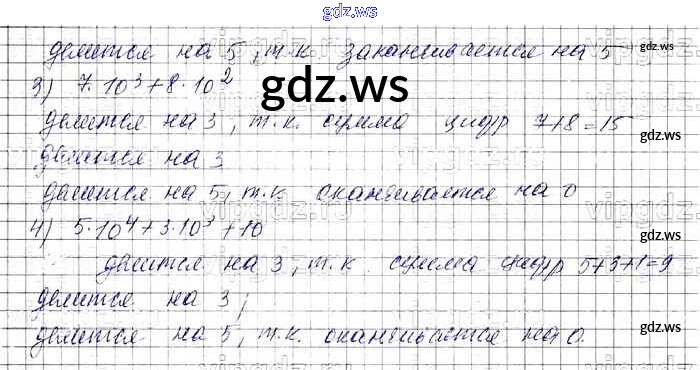 gdz.ws
делится на 5, т.к. заканчивается на 5
3) 7·10³+8·10²
делится на 3, т.к. сумма цифр 7+8=15
делится на 3
делится на 5, т.к. оканчивается на 0
4) 5·10⁴+3·10³+10
делится на 3, т.к. сумма цифр 5+3+1=9
делится на 3;
делится на 5, т.к. оканчивается на 0.
gdz.ws
gdz.ws
gdz.ws
gdz.ws
gdz.ws
gdz.ws